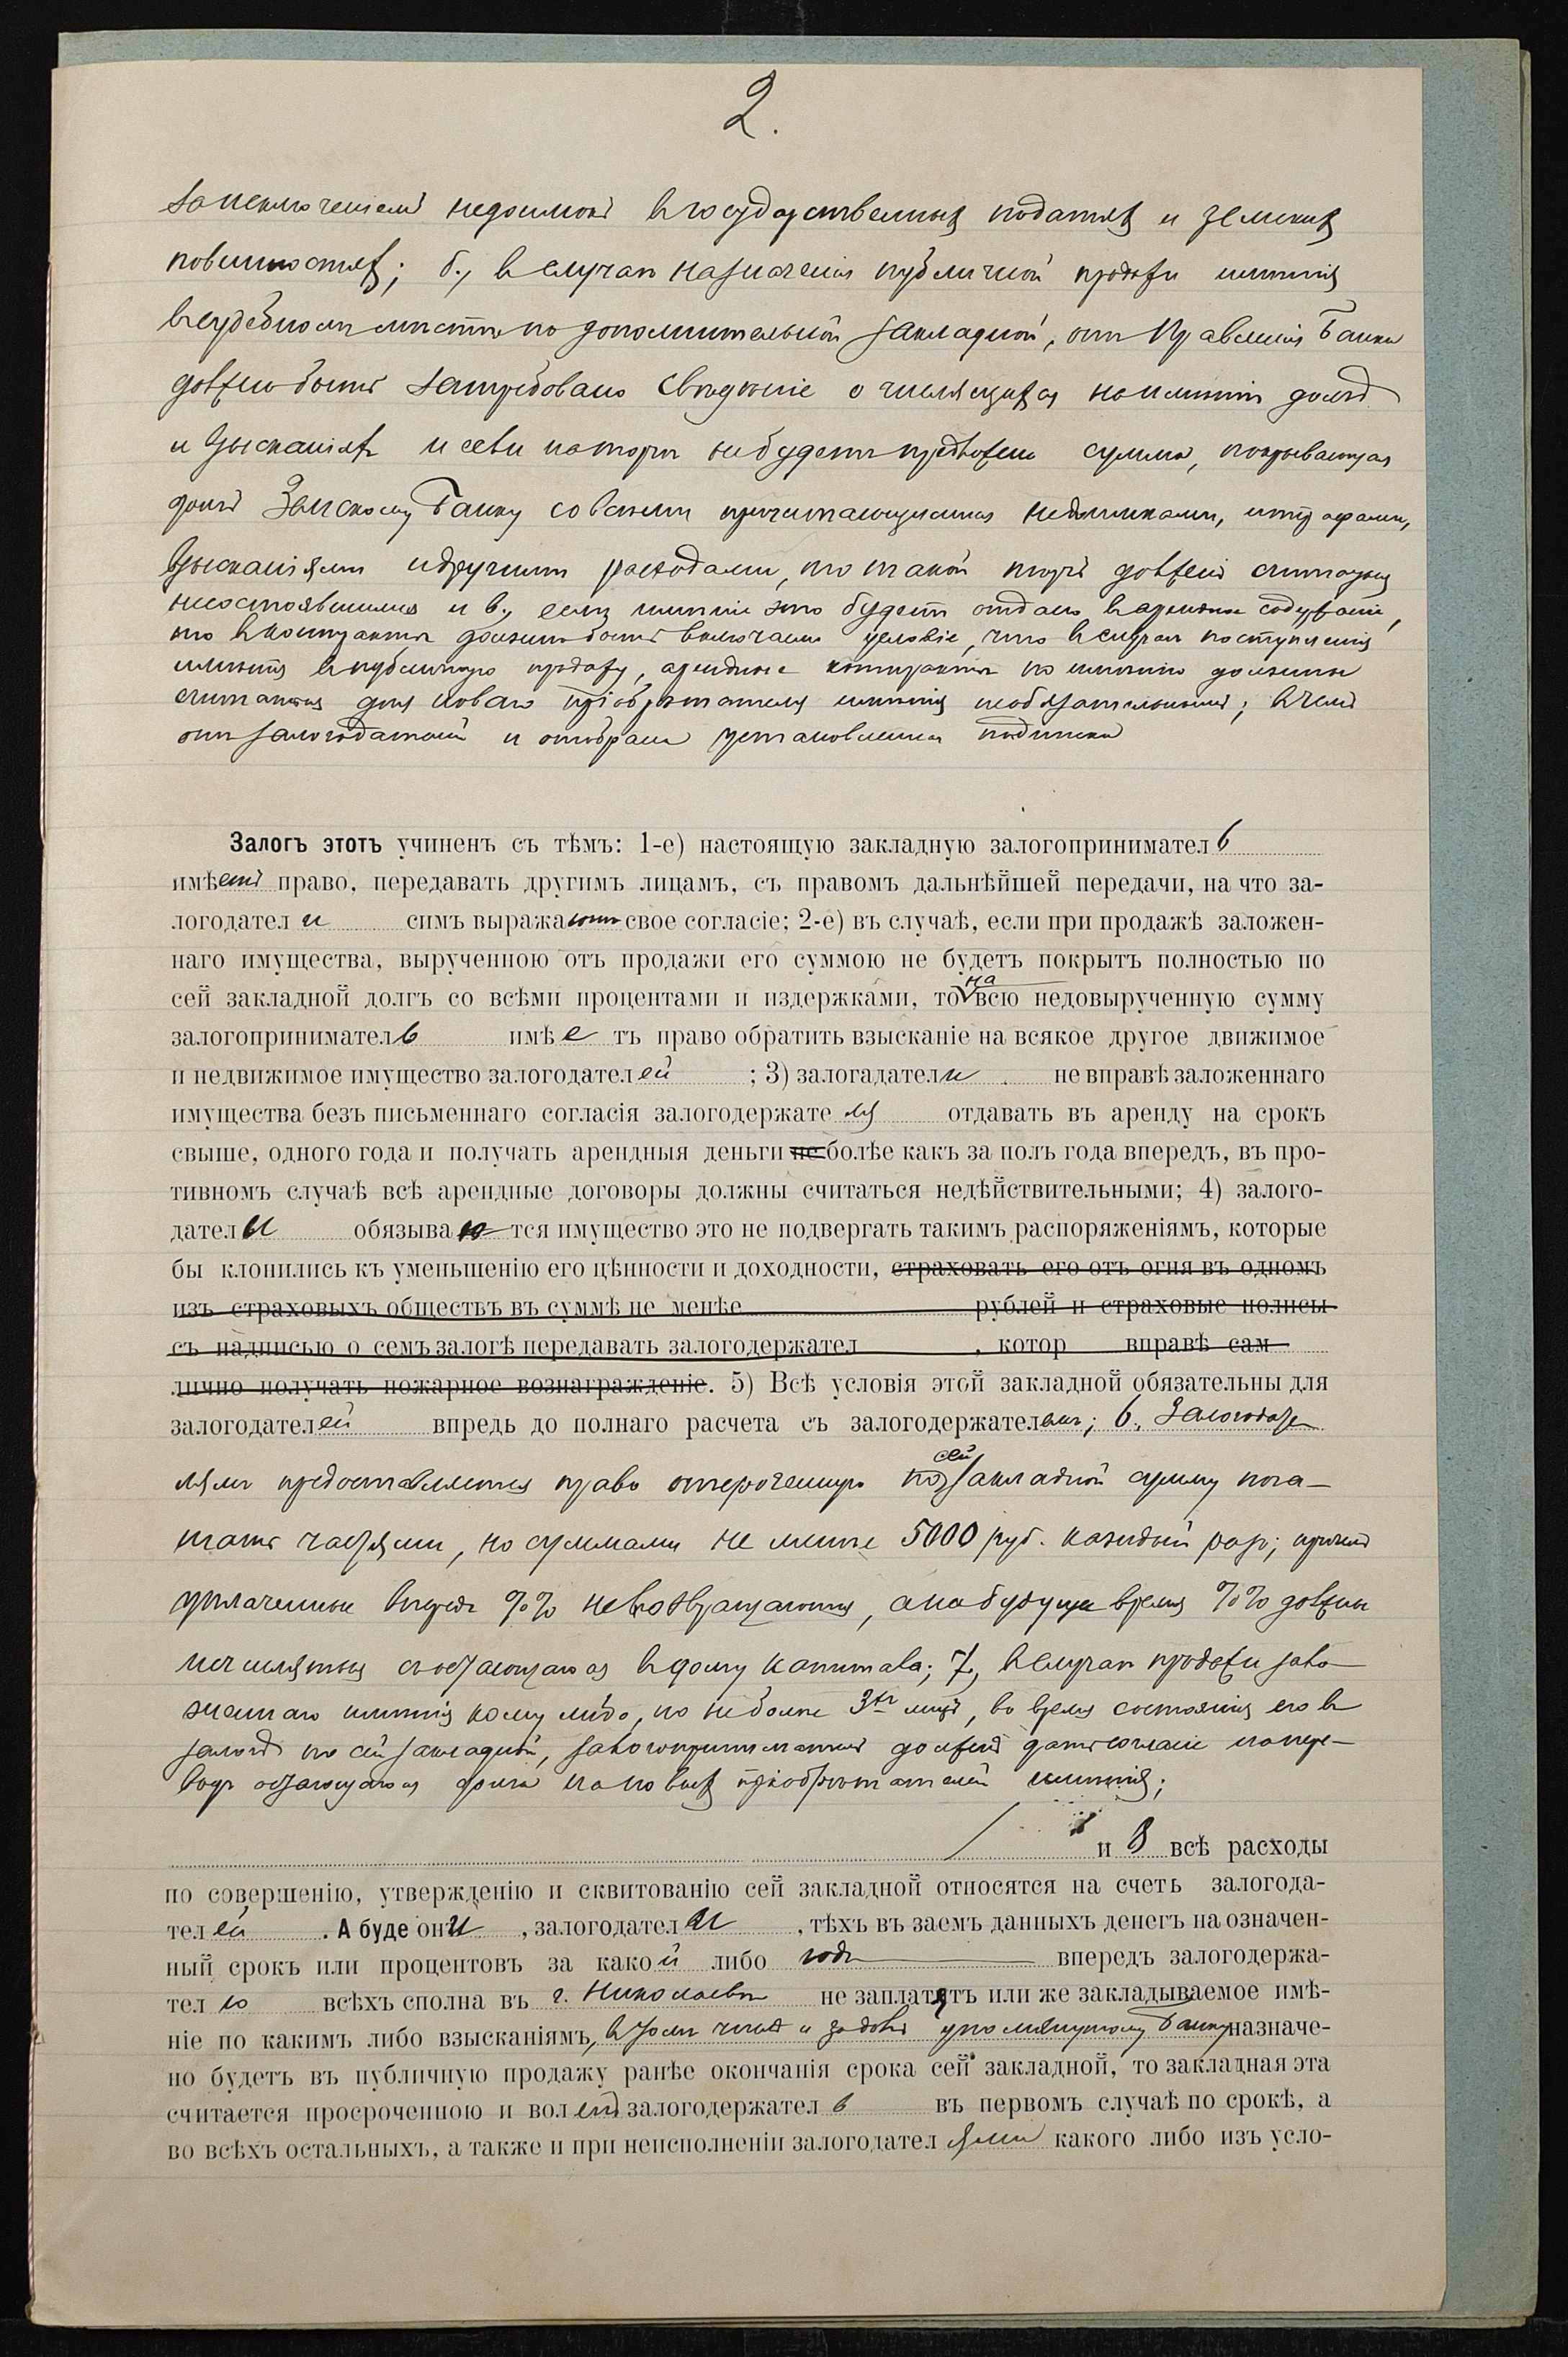 2.
за исключеніемъ недоимокъ въ государственныхъ податяхъ и земскихъ
повинностяхъ; б., въ случаѣ назначенія публичной продажи имѣнія
въ судебномъ мѣстѣ по дополнительной закладной, отъ Правленія Банка
должно быть затребовано свѣдѣніе о числящихся на имѣніи долгѣ
и взысканіяхъ и если на торгахъ не будетъ предложена сумма, покрывающая
долгъ Земскому Банку со всѣми причитающимися недоимками, штрафами,
взысканіями и другими расходами, то такой торгъ долженъ считаться
несостоявшимся и в., если имѣніе это будетъ отдано въ арендное содержаніе,
то въ контрактѣ должно быть включаемо условіе, что въ случаѣ поступленія
имѣнія въ публичную продажу, арендные контракты по имѣнію должны
считаться для новаго пріобрѣтателя имѣнія необязательными; въ чемъ
отъ залогодателей и отобрана установленная подписка
Залогъ этотъ учиненъ съ тѣмъ: 1-е) настоящую закладную залогопринимател ь
имѣетъ право, передавать другимъ лицамъ, съ правомъ дальнѣйшей передачи, на что за-
логодател и симъ выражаютъ свое согласіе; 2-е) въ случаѣ, если при продажѣ заложен-
наго имущества, вырученною отъ продажи его суммою не будетъ покрытъ полностью по
сей закладной долгъ со всѣми процентами и издержками, то на всю недовырученную сумму
залогопринимател ь имѣ е тъ право обратить взысканіе на всякое другое движимое
и недвижимое имущество залогодател ей ; 3) залогадател и не вправѣ заложеннаго
имущества безъ письменнаго согласія залогодержате ля отдавать въ аренду на срокъ
свыше, одного года и получать арендныя деньги не болѣе какъ за полъ года впередъ, въ про-
тивномъ случаѣ всѣ арендные договоры должны считаться недѣйствительными; 4) залого-
дател и обязыва ю тся имущество это не подвергать такимъ распоряженіямъ, которые
бы клонились къ уменьшенію его цѣнности и доходности, страховать его отъ огня въ одномъ
изъ страховыхъ обществъ въ суммѣ не менѣе рублей и страховые полисы
съ надписью о семъ залогѣ передавать залогодержател , котор вправѣ сам
лично получать пожарное вознагражденіе. 5) Всѣ условія этой закладной обязательны для
залогодател ей впредь до полнаго расчета съ залогодержател емъ; 6., Залогода-
лямъ предоставляется право отсроченную по сей закладной сумму пога-
шать частями, но суммами не менѣе 5000 руб. каждый разъ; причемъ
уплаченные впередъ %% не возвращаются, а на будущее время %% должны
исчисляться съ остающагося въ долгу капитала; 7., въ случаѣ продажи зало-
женнаго имѣнія кому либо, но не болѣе 3хъ лицъ, во время состоянія его въ
залогѣ по сей закладной, залогоприниматель долженъ дать согласіе на пере-
водъ остающагося долга на новыхъ пріобрѣтателей имѣнія;
и 8 всѣ расходы
по совершенію, утвержденію и сквитованію сей закладной относятся на счетъ залогода-
тел ей . А буде он и , залогодател и , тѣхъ въ заемъ данныхъ денегъ на означен-
ный срокъ или процентовъ за како й либо годъ впередъ залогодержа-
тел ю всѣхъ сполна въ г. Николаевѣ не заплатятъ или же закладываемое имѣ-
ніе по какимъ либо взысканіямъ, въ томъ числѣ и за долгъ упомянутому Банку назначе-
но будетъ въ публичную продажу ранѣе окончанія срока сей закладной, то закладная эта
считается просроченною и вол енъ залогодержател ь въ первомъ случаѣ по срокѣ, а
во всѣхъ остальныхъ, а также и при неисполненіи залогодател ями какого либо изъ усло-